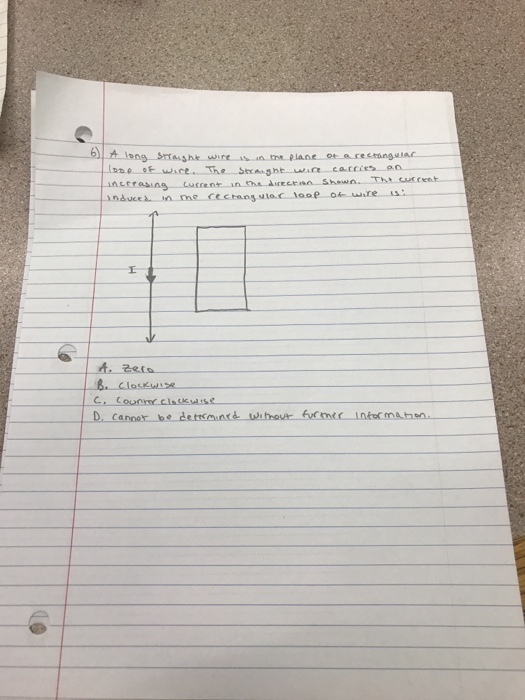 6) A long straight wire is in the plane of a rectangular
loop of wire. The straight wire carries an
increasing current in the direction shown. The current
induced in the rectangular loop of wire is:
I
A. Zero
B. Clockwise
C. Counter clockwise
D. Cannot be determined without further information.